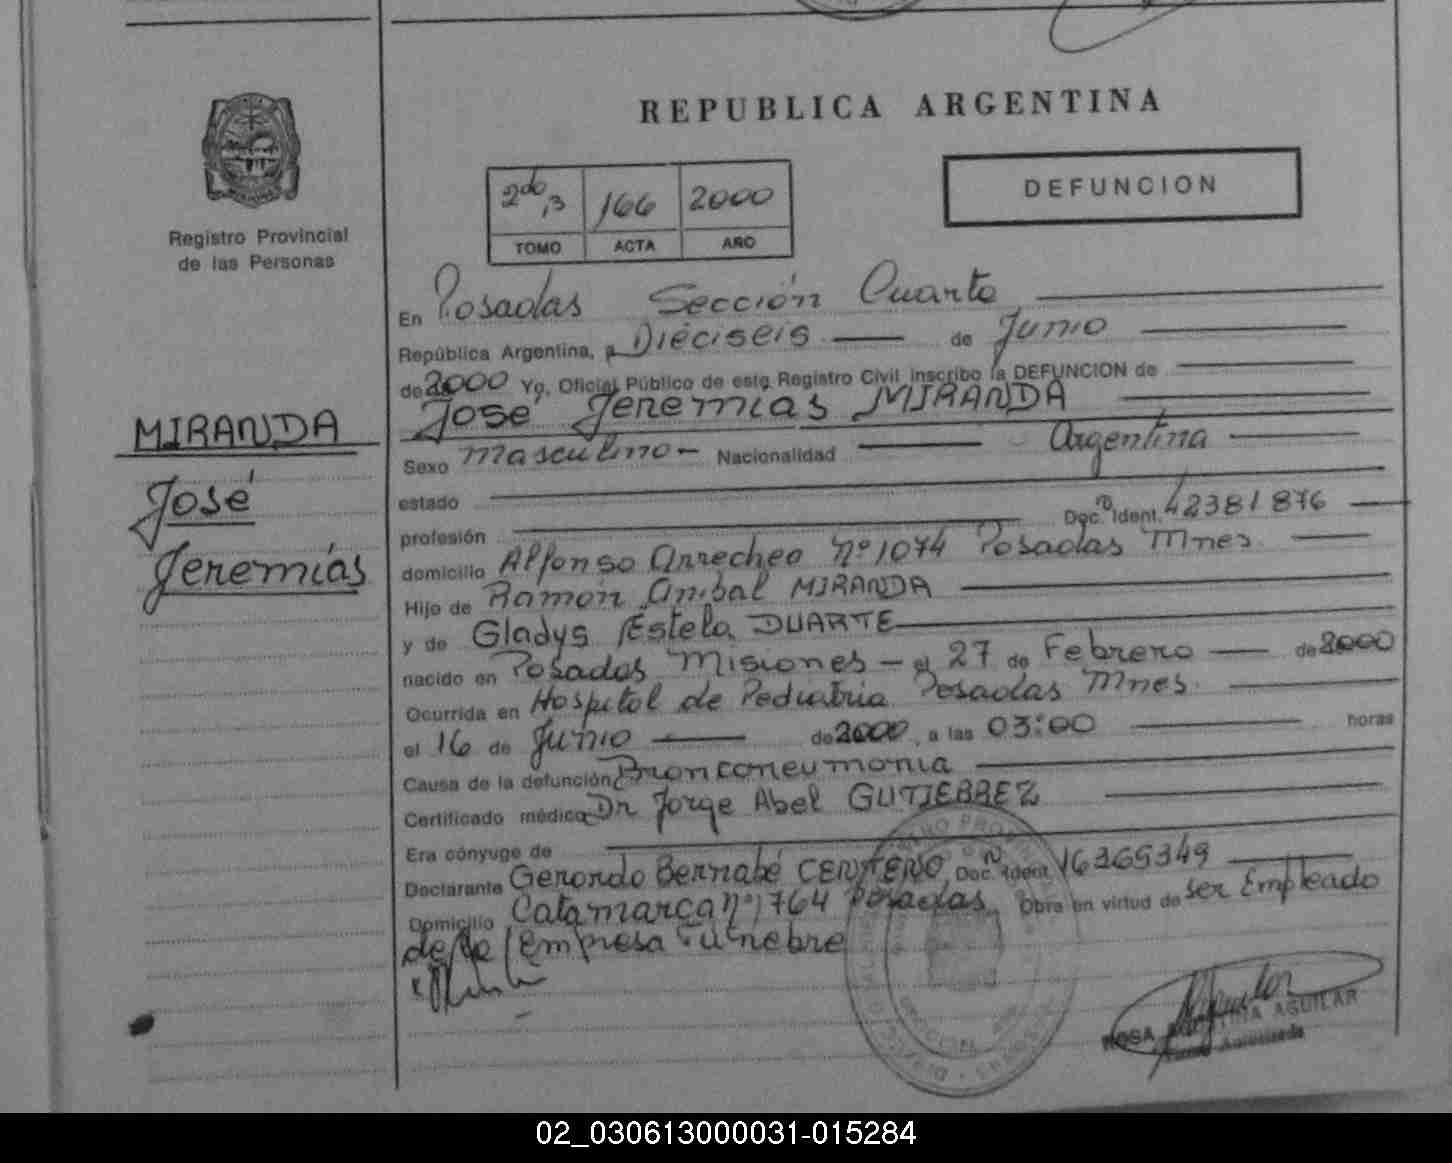 REPUBLICA ARGENTINA
DEFUNCION
Registro Provincial
de las Personas
2do 166 2000
TOMO ACTA AÑO
MIRANDA
José
Jeremías
En Posadas Sección Cuarta
República Argentina, a Dieciseis de Junio
de 2000 Yo, Oficial Público de este Registro Civil inscribo la DEFUNCION de
José Jeremías MIRANDA
Sexo masculino Nacionalidad Argentina
estado
profesión Doc. Ident. 42381876
domicilio Alfonso Arrechea nº 1074 Posadas Mnes.
Hijo de Ramón Anibal MIRANDA
y de Gladys Estela DUARTE
nacido en Posadas Misiones el 27 de Febrero de 2000
Ocurrida en Hospital de Pediatria Posadas Mnes.
el 16 de Junio de 2000, a las 03:00 horas
Causa de la defunción Bronconeumonia
Certificado médico Dr Jorge Abel GUTIERREZ
Era cónyuge de
Declarante Gerardo Bernabé CENTENO Doc. Ident 16365349
Domicilio Catamarca nº 1764 Posadas Obra en virtud de ser Empleado
de la Empresa Fúnebre
ROSA AGUILAR
02_030613000031-015284